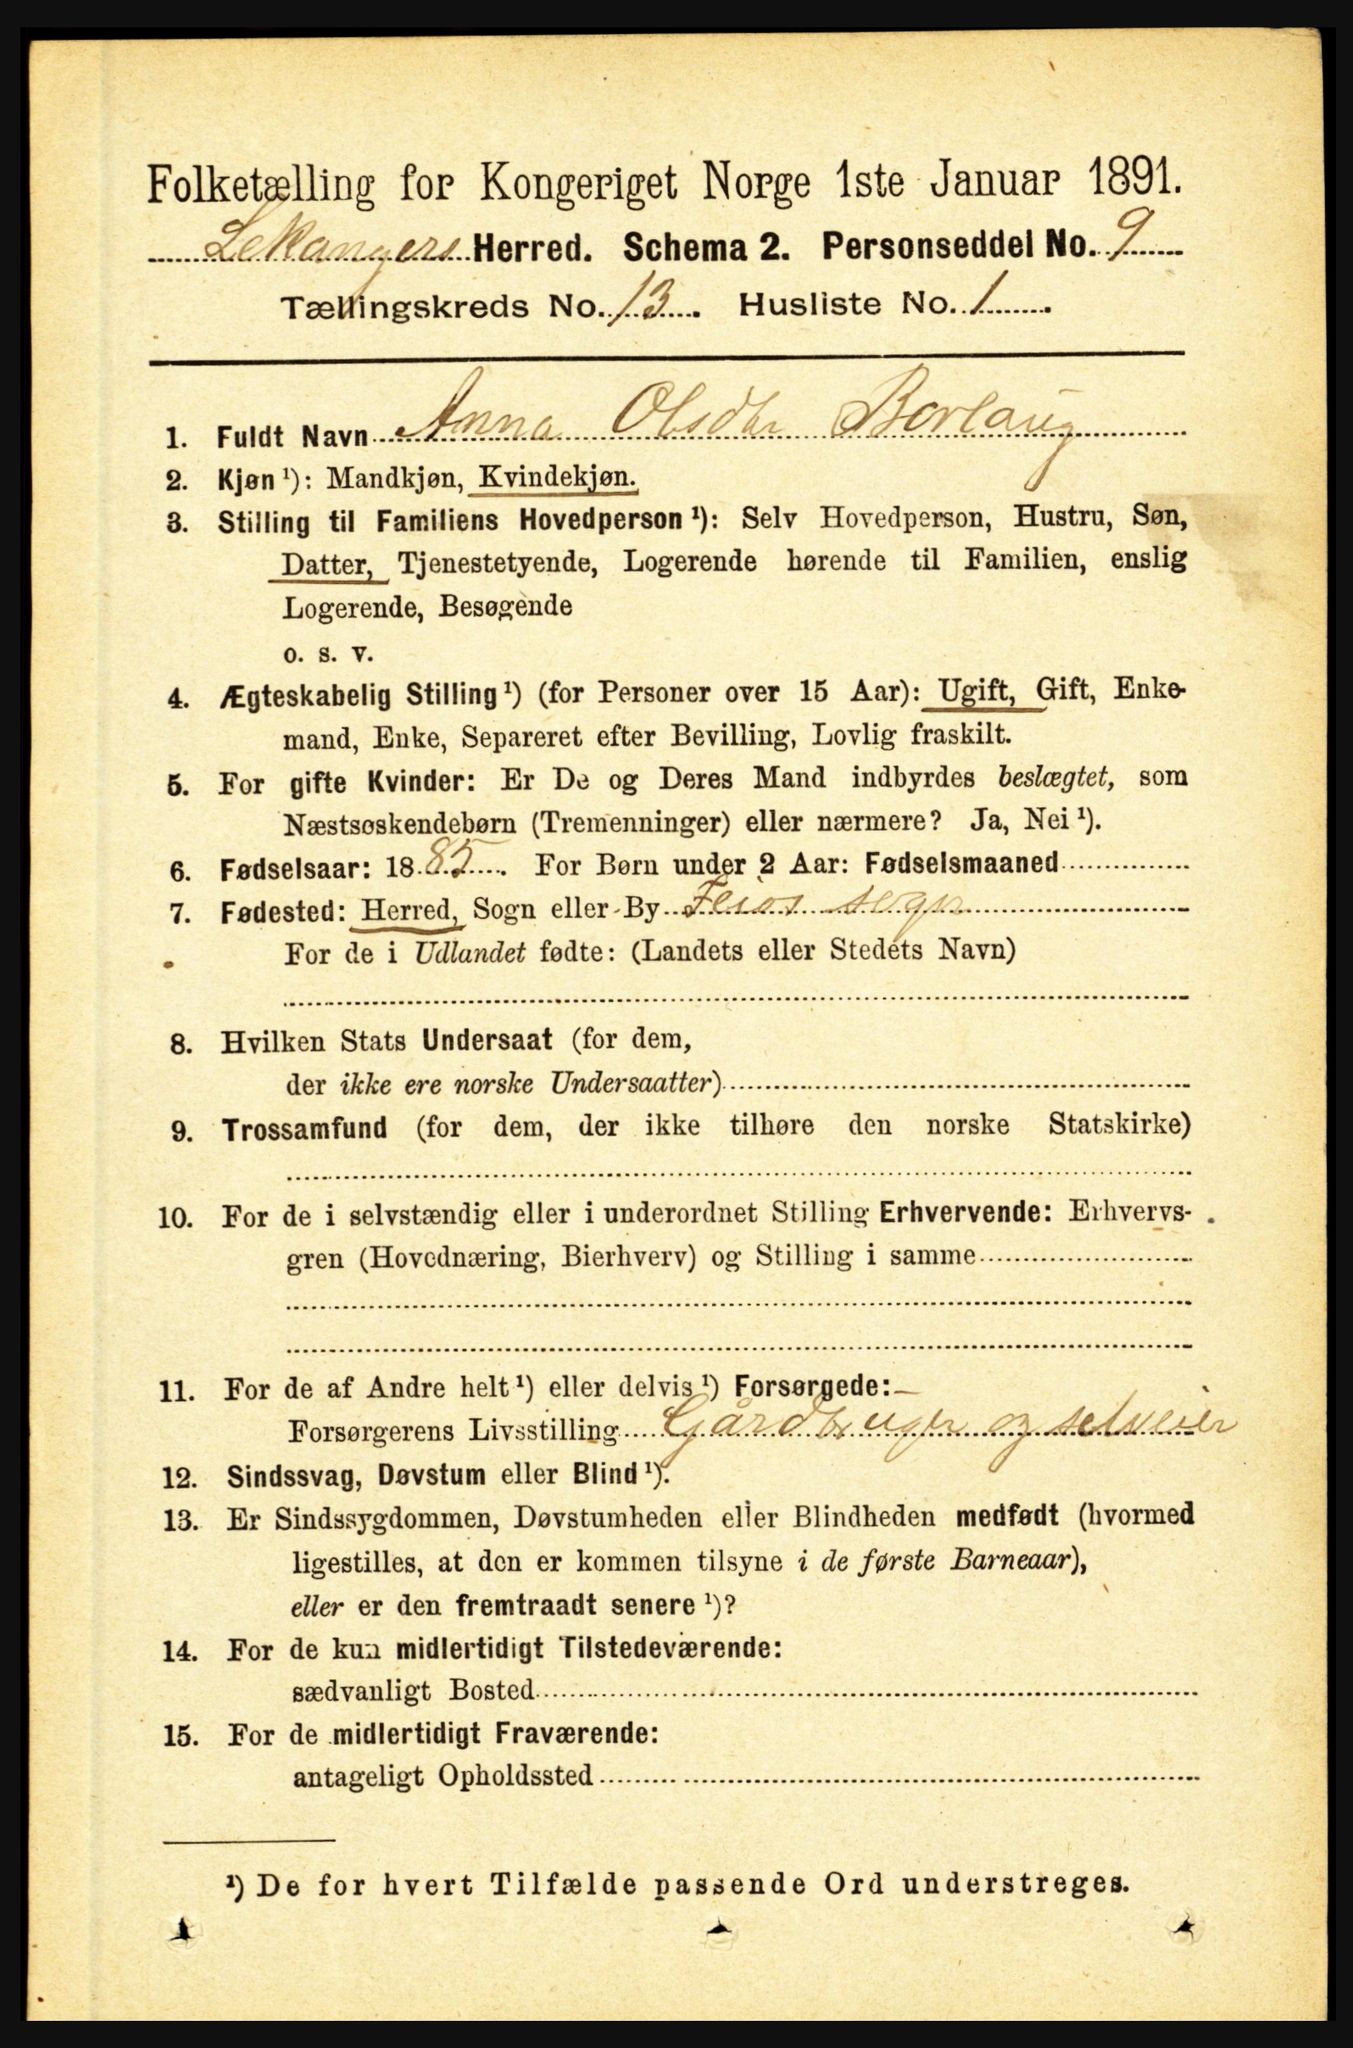 Folketælling for Kongeriget Norge 1ste Januar 1891.
Lekangers Herred. Schema 2. Personseddel No. 9
Tællingskreds No. 13. Husliste No. 1.
1. Fuldt Navn Anna Olsdtr Borlaug
2. Kjøn ¹): Mandkjøn, Kvindekjøn.
3. Stilling til Familiens Hovedperson ¹): Selv Hovedperson, Hustru, Søn,
Datter, Tjenestetyende, Logerende hørende til Familien, enslig
Logerende, Besøgende
o. s. v.
4. Ægteskabelig Stilling ¹) (for Personer over 15 Aar): Ugift, Gift, Enke-
mand, Enke, Separeret efter Bevilling, Lovlig fraskilt.
5. For gifte Kvinder: Er De og Deres Mand indbyrdes beslægtet, som
Næstsøskendebørn (Tremenninger) eller nærmere? Ja, Nei ¹).
6. Fødselsaar: 1885. For Børn under 2 Aar: Fødselsmaaned
7. Fødested: Herred, Sogn eller By Feios sogn
For de i Udlandet fødte: (Landets eller Stedets Navn)
8. Hvilken Stats Undersaat (for dem,
der ikke ere norske Undersaatter)
9. Trossamfund (for dem, der ikke tilhøre den norske Statskirke)
10. For de i selvstændig eller i underordnet Stilling Erhvervende: Erhvervs-
gren (Hovednæring, Bierhverv) og Stilling i samme
11. For de af Andre helt ¹) eller delvis ¹) Forsørgede:
Forsørgerens Livsstilling Gårdbruger og selveier
12. Sindssvag, Døvstum eller Blind ¹).
13. Er Sindssygdommen, Døvstumheden eller Blindheden medfødt (hvormed
ligestilles, at den er kommen tilsyne i de første Barneaar),
eller er den fremtraadt senere ¹)?
14. For de kun midlertidigt Tilstedeværende:
sædvanligt Bosted
15. For de midlertidigt Fraværende:
antageligt Opholdssted
¹) De for hvert Tilfælde passende Ord understreges.